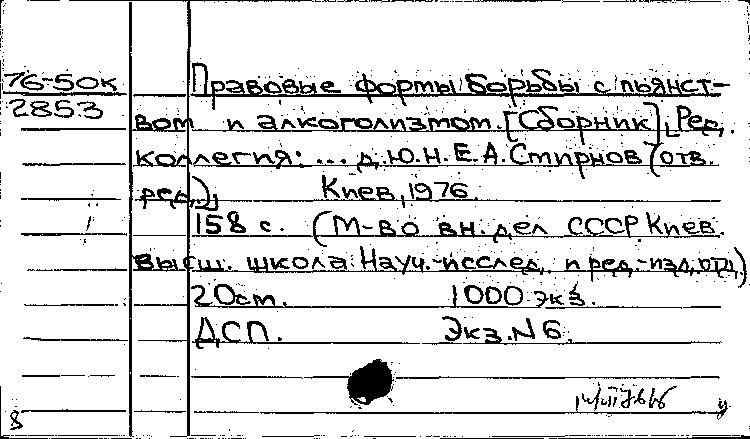 76-50к
2853
Правовые формы борьбы с пьянст-
вом и алкоголизмом. [Сборник]. Ред.
коллегия: ... д.ю.н. Е.А. Смирнов (отв.
ред.). Киев, 1976.
158 с. (М-во вн. дел СССР. Киев.
высш. школа. Науч.-исслед. и ред.-изд. отд.)
20 см. 1000 экз.
ДСП. Экз. N 6.
8 у